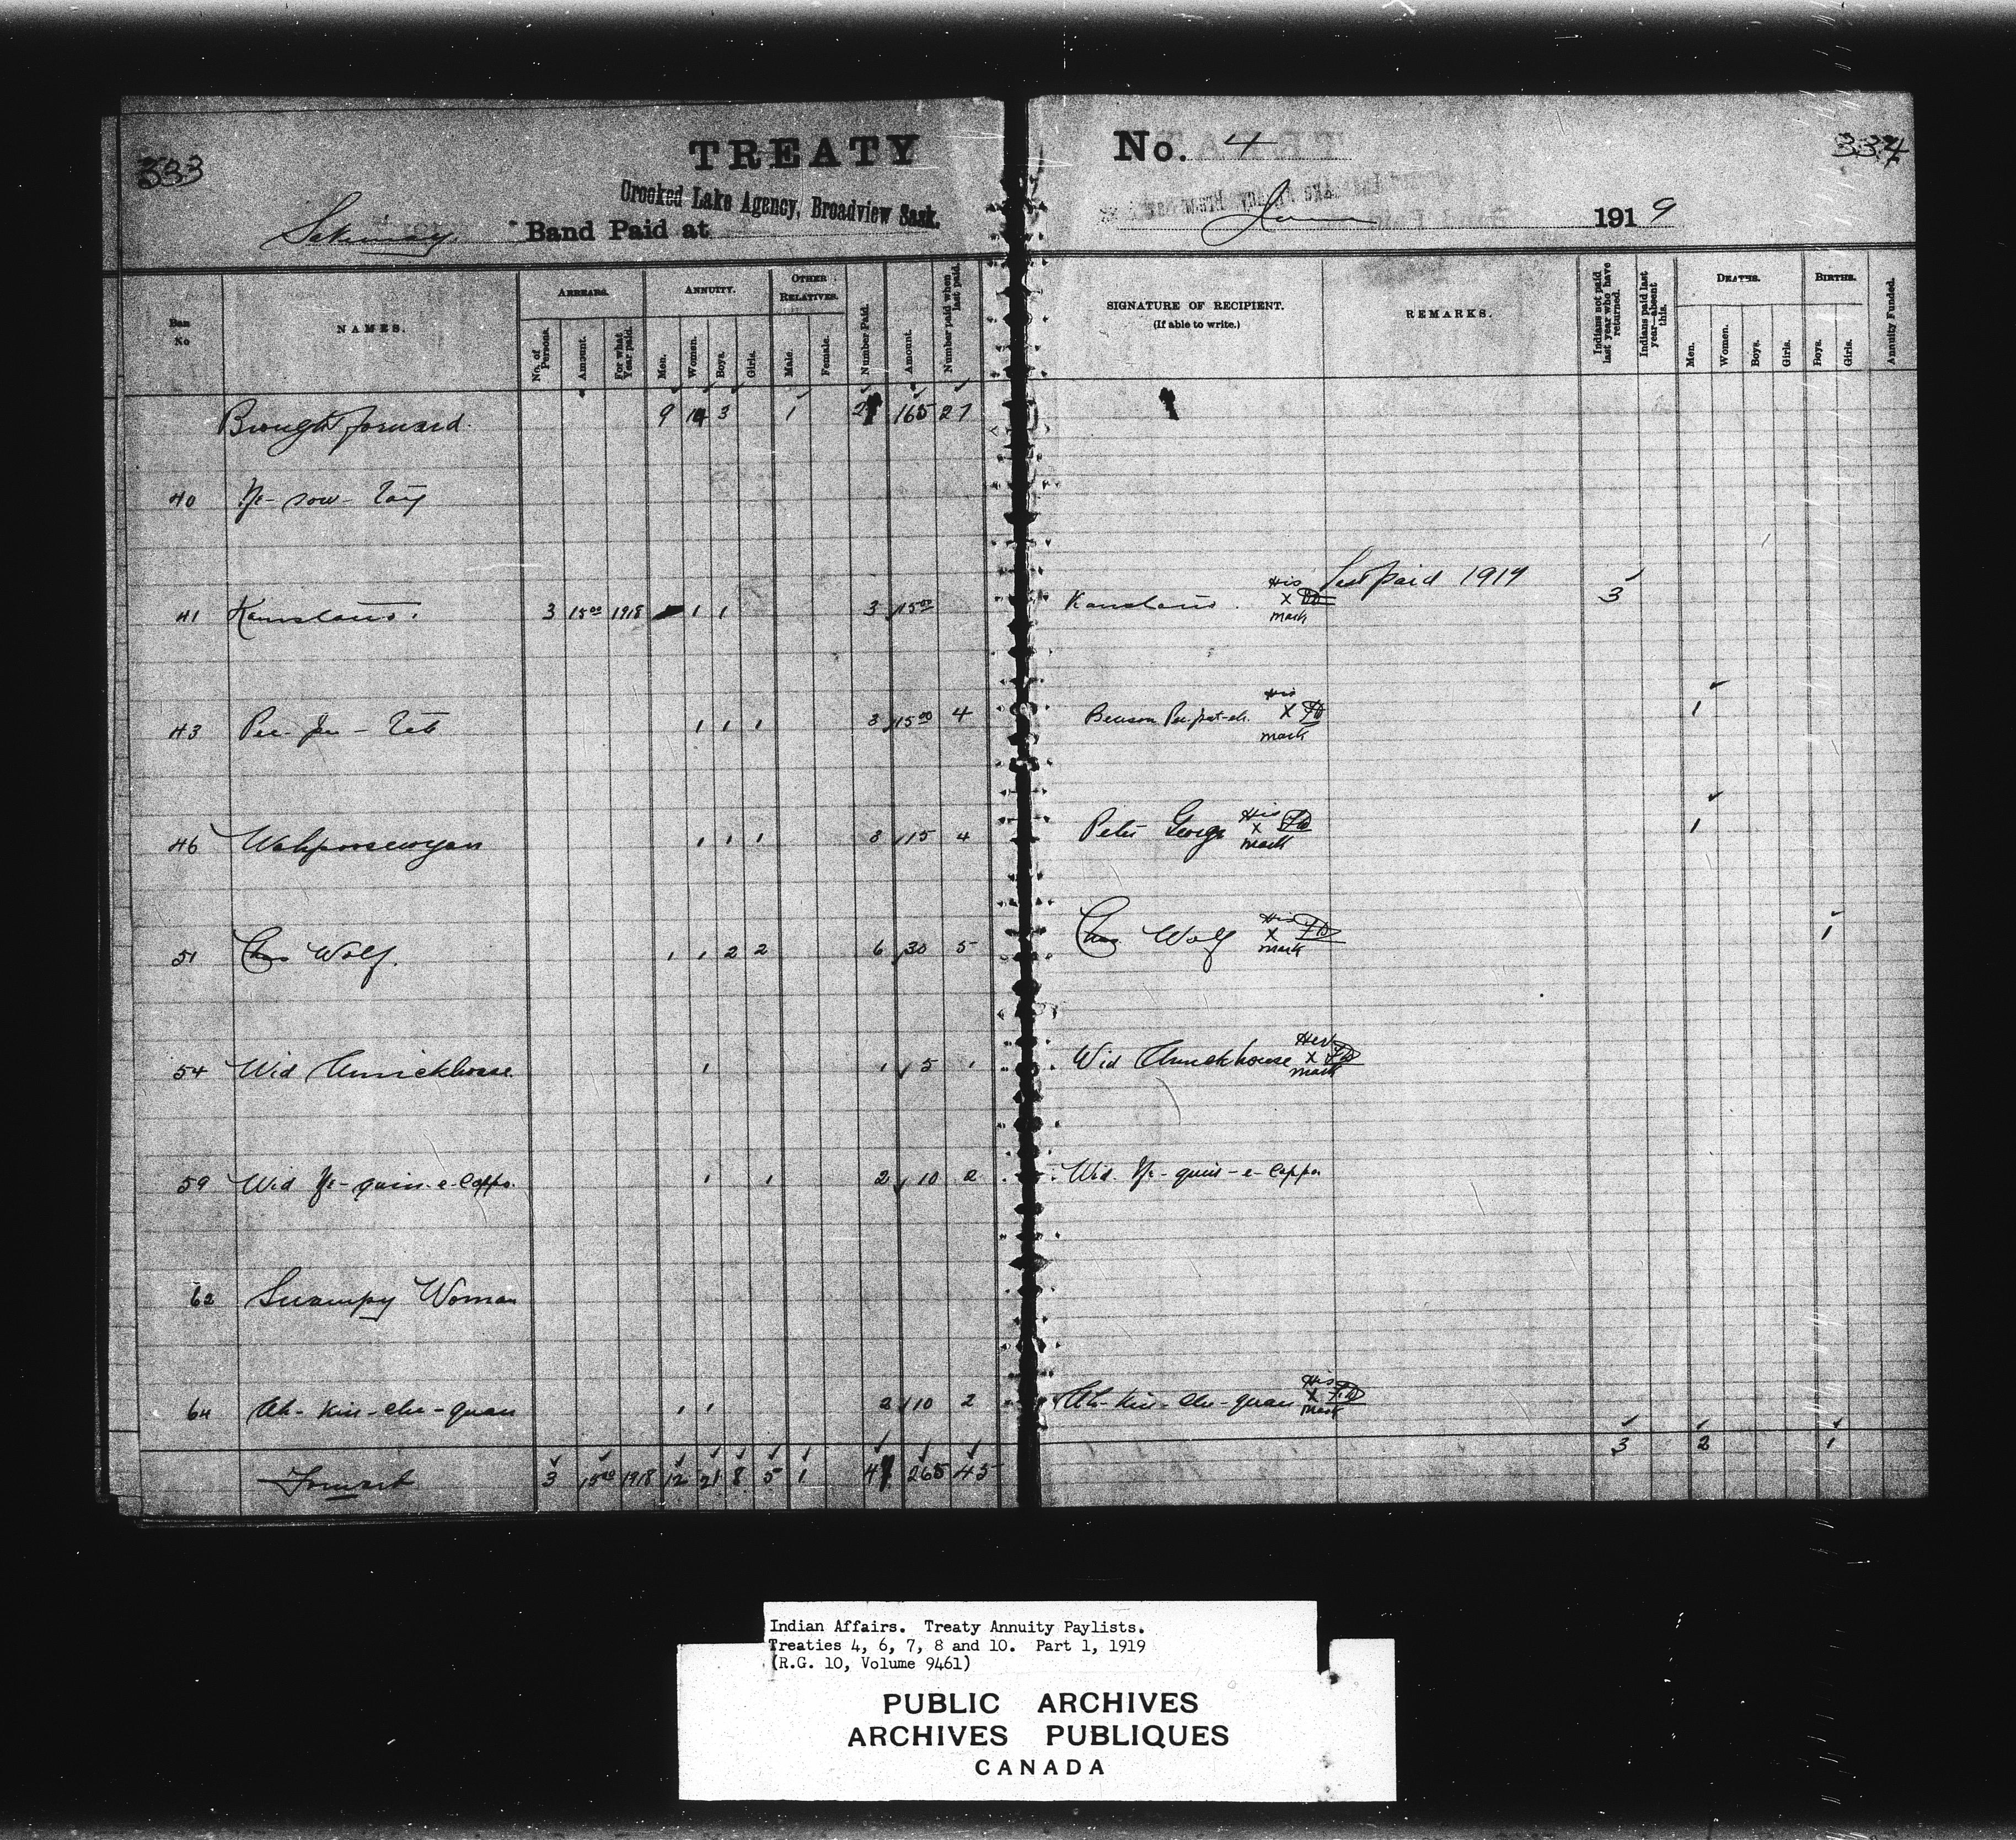 333
TREATY No. 4
334
Crooked Lake Agency, Broadview Sask.
Sakimay Band Paid at June 1919
NAMES.
No
ARREARS.
No. of Persons.
Amount.
For what Year paid.
ANNUITY.
Men.
Women.
Boys.
Girls.
OTHER RELATIVES.
Male.
Female.
Number Paid.
Amount.
Number paid when last paid.
SIGNATURE OF RECIPIENT.
(If able to write.)
REMARKS.
Indians not paid last year who have returned.
Indians paid last year—absent this.
DEATHS.
Men.
Women.
Boys.
Girls.
BIRTHS.
Boys.
Girls.
Annuity Funded.
Brought forward. 9 14 3 1 165 27
40
Last paid 1917
41 3 15.00 1918 1 1 3 15.00 His X mark 3
43 1 1 1 3 15.00 4 Benson His X mark 1
46 Wahpoosewyan 1 1 1 3 15 4 Peter George His X mark 1
51 Chas Wolf. 1 1 2 2 6 30 5 Chas Wolf His X mark 1
54 Wid 1 1 5 1 Wid Her X mark
59 Wid Ye-quin-e-Cappo. 1 1 2 10 2 Wid. Ye-quin-e-Cappo.
62 Swampy Woman
64 Ah-kin-che-quan 1 1 2 10 2 Ah-kin-che-quan His X mark
Forward 3 15.00 1918 12 21 8 5 1 265 45 3 2 1
Indian Affairs. Treaty Annuity Paylists.
Treaties 4, 6, 7, 8 and 10. Part 1, 1919
(R.G. 10, Volume 9461)
PUBLIC ARCHIVES
ARCHIVES PUBLIQUES
CANADA